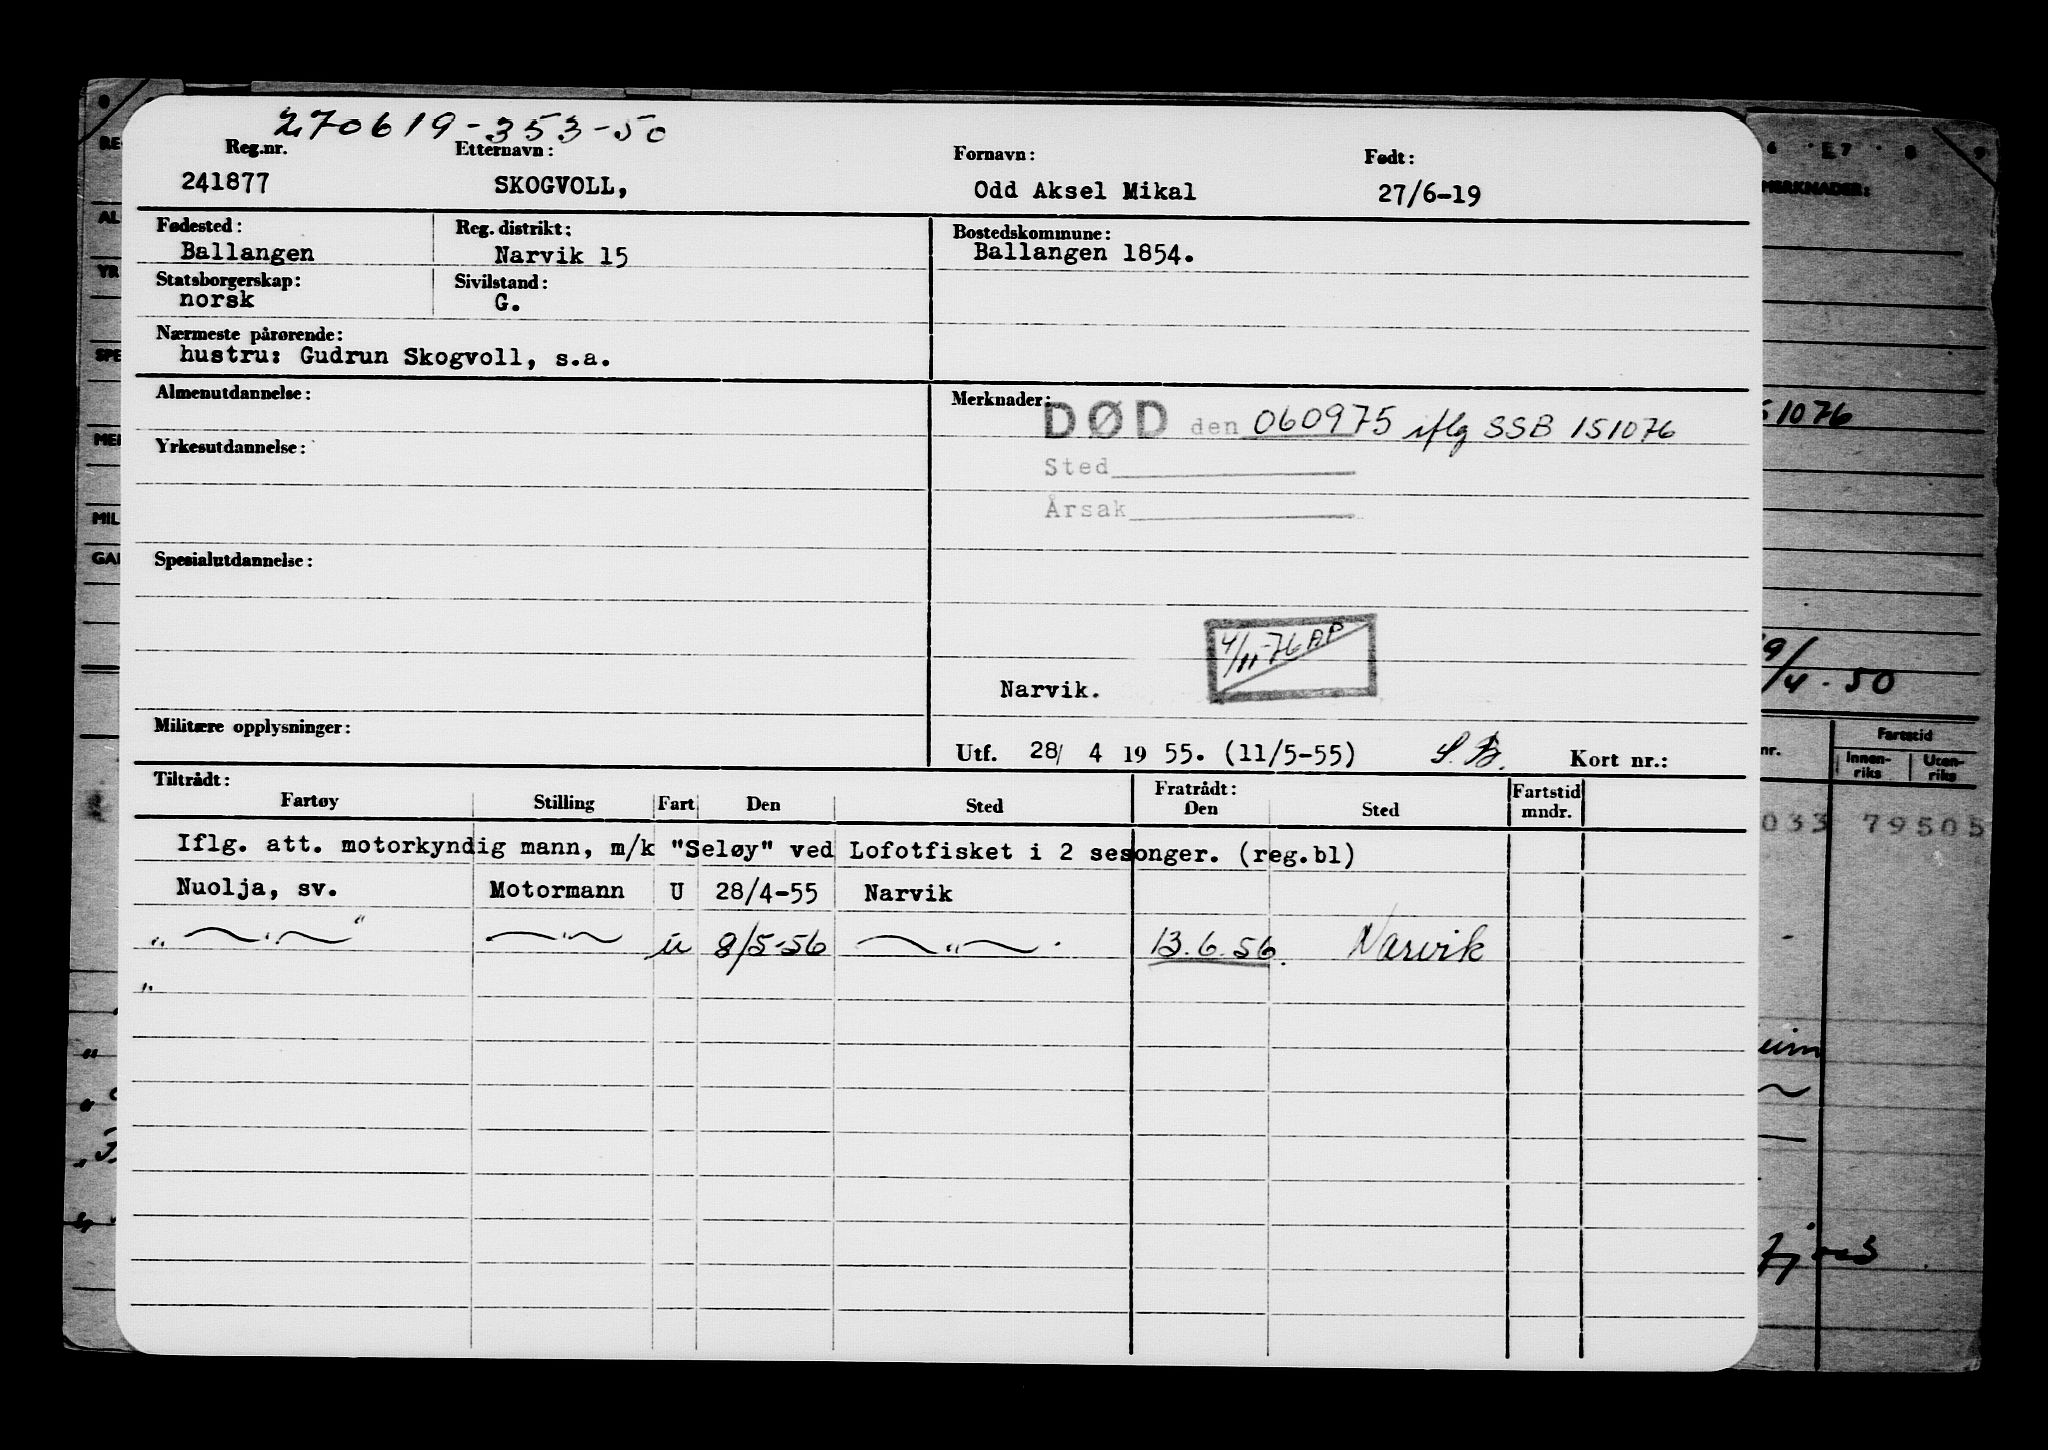 270619-353-50
Reg.nr. Etternavn: Fornavn: Født:
241877 SKOGVOLL, Odd Aksel Mikal 27/6-19
Fødested: Reg. distrikt: Bostedskommune:
Ballangen Narvik 15 Ballangen 1854.
Statsborgerskap: Sivilstand:
norsk G.
Nærmeste pårørende:
hustru: Gudrun Skogvoll, s.a.
Almenutdannelse: Merknader:
DØD den 060975 iflg SSB 151076
Yrkesutdannelse:
Sted
Årsak
Spesialutdannelse:
4/11-76 AP
Narvik.
Militære opplysninger:
Utf. 28/ 4 19 55. (11/5-55) S.B. Kort nr.:
Tiltrådt: Fratrådt:
Fartøy Stilling Fart Den Sted Den Sted Fartstid mndr.
Iflg. att. motorkyndig mann, m/k "Seløy" ved Lofotfisket i 2 sesonger. (reg.bl)
Nuolja, sv. Motormann U 28/4-55 Narvik
" —"— " —"— u 8/5-56 —"— . 13.6.56. Narvik
"
6 E7 8 9
MERKNADER:
51076
9/4-50
nr. Fartstid
Innen-riks Uten-riks
033 79505